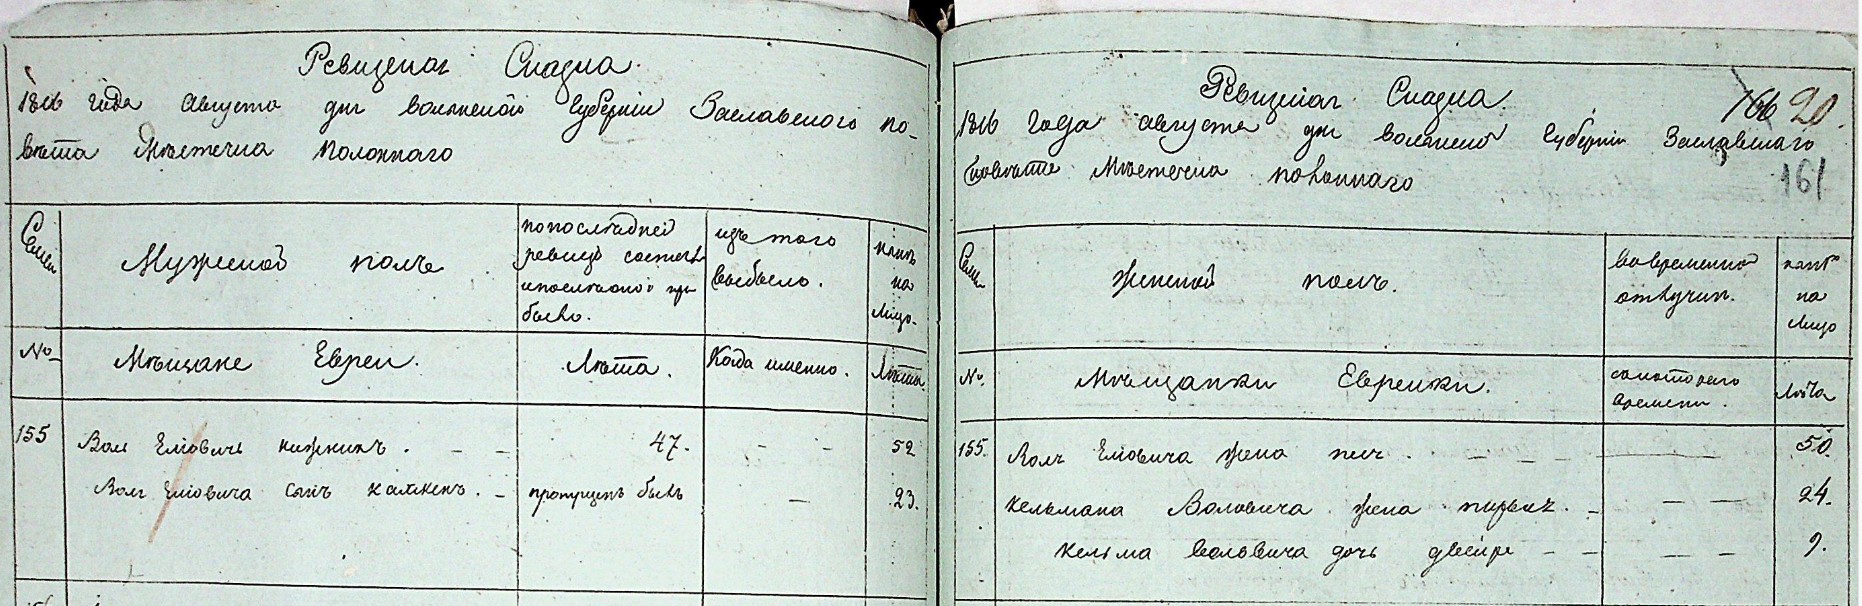 Ревизская Сказка.
1816 года Августа дня волынской Губернии Заславского по-
вѣта Мѣстечка полоннаго
Семьи
Мужеской полъ
попослѣдней
ревизiй состояло
и после оной при
было.
изъ того
выбыло.
нынѣ
на
лицо.
№
Мѣщане Евреи.
Лѣта.
Когда имянно.
Лѣта
155 Вол Елiовичъ книжникъ. 47. 52
Вол Елiовича сынъ 23.
пропущенъ былъ
166 20.
Ревизская Сказка.
1816 Года августа дня волынской Губернiи Заславскаго
повѣта Мѣстечка полоннаго
161
Семьи
женской полъ.
во временной
отлучки.
нынѣ
на
лицо
№.
Мѣщанки Еврейки.
скотораго
времени.
лѣта
155. Волъ Елiовича жена 50.
кельмана Воловича жена 24.
кельма Воловича дочь двейре 9.